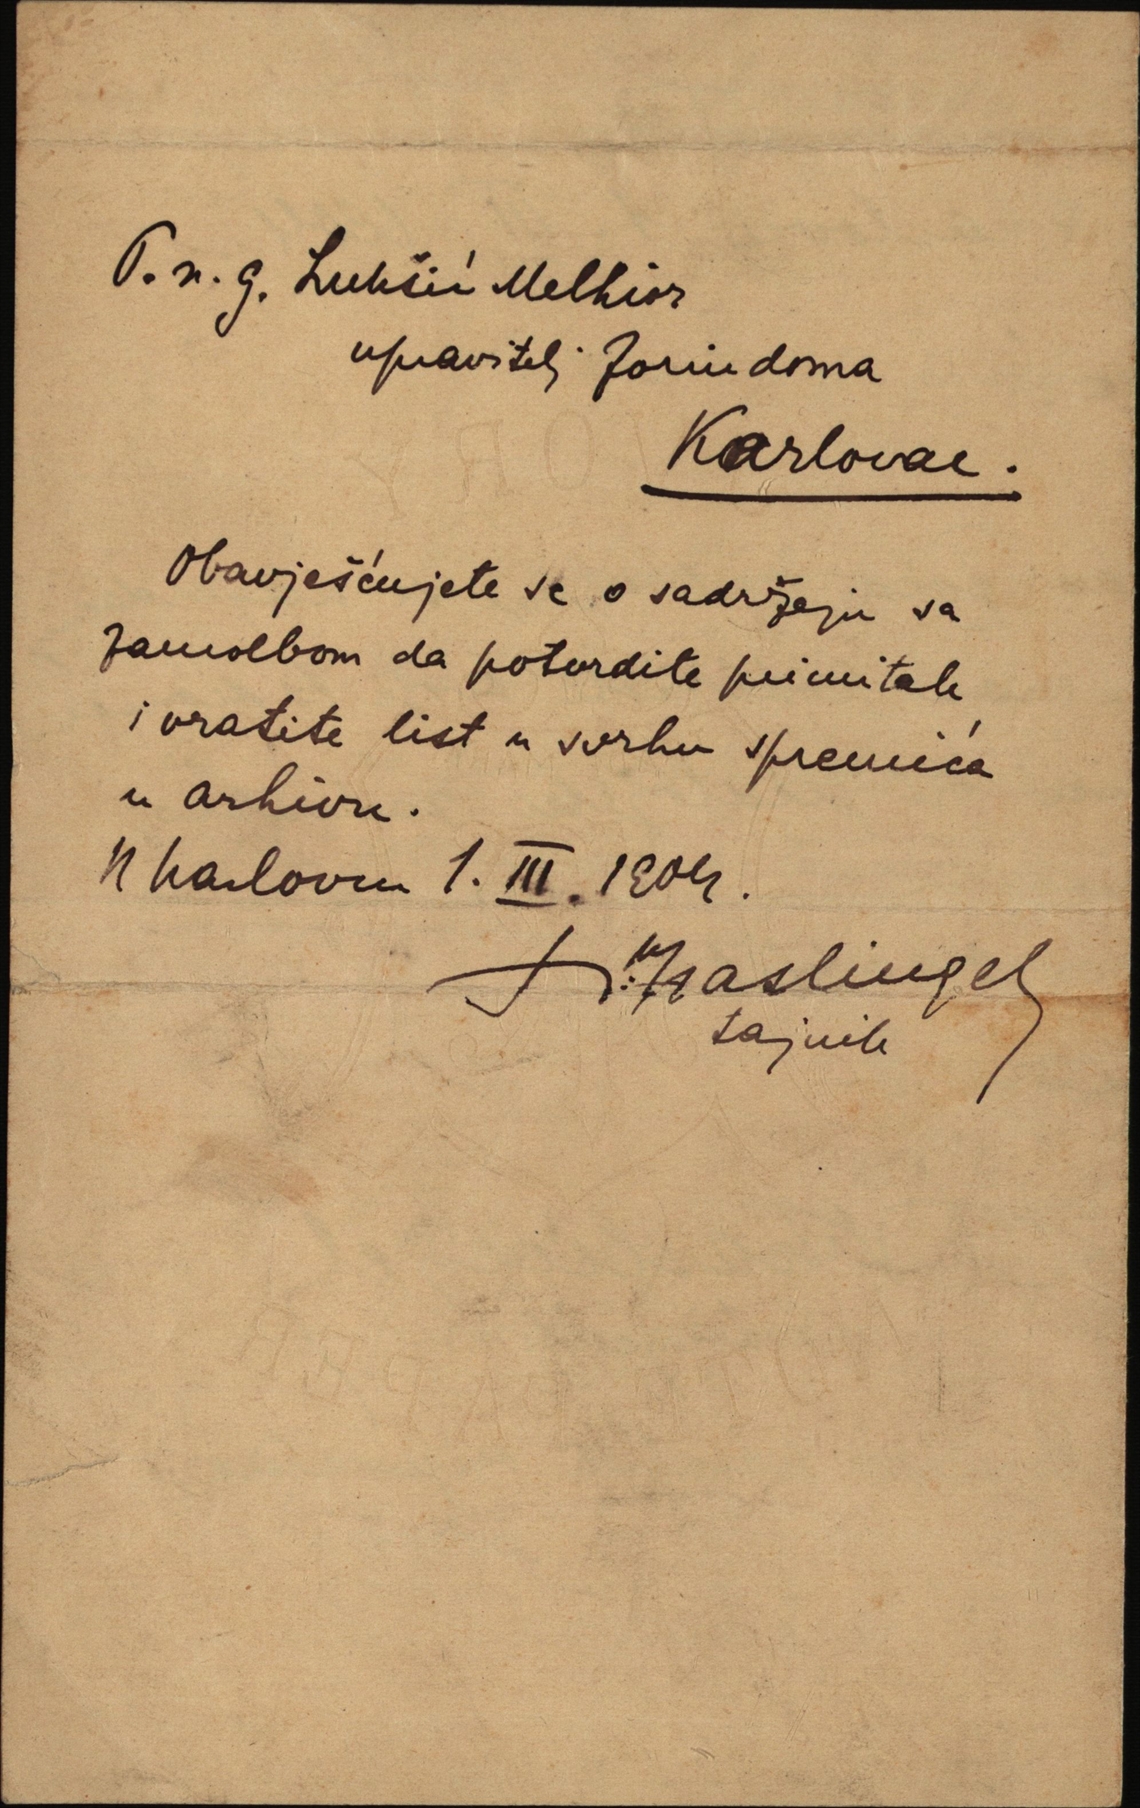 P. n. g. Lukšić Melkior
upravitelj Zorin doma
Karlovac.
Obavješćujete se o sadržaju sa
zamolbom da potvrdite primitak
i vratite list u svrhu spremića
u arhivu.
U Karlovcu 1. III. 1904.
Haslinger
tajnik